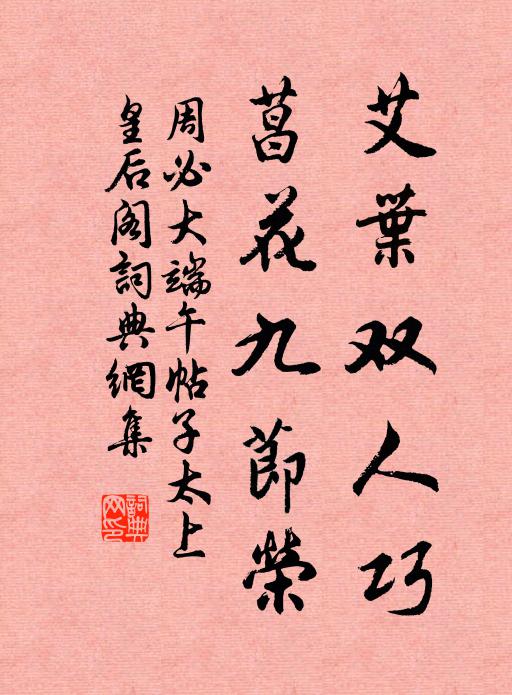 艾葉双人巧
菖花九節榮
周必大端午帖子太上
皇后阁詞典網集
詞典網印